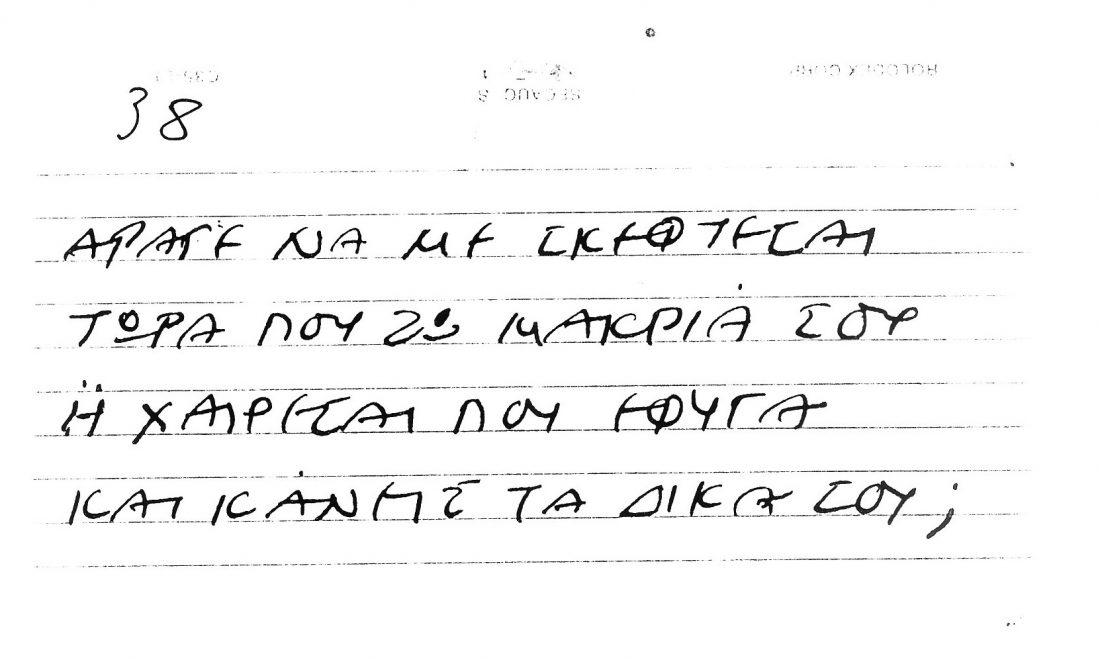 38
ΑΡΑΓΕ ΝΑ ΜΕ ΣΚΕΦΤΕΣΑΙ
ΤΩΡΑ ΠΟΥ ΖΩ ΜΑΚΡΙΆ ΣΟΥ
Ή ΧΑΙΡΕΣΑΙ ΠΟΥ ΕΦΥΓΑ
ΚΑΙ ΚΆΝΕΙΣ ΤΑ ΔΙΚΑ ΣΟΥ;